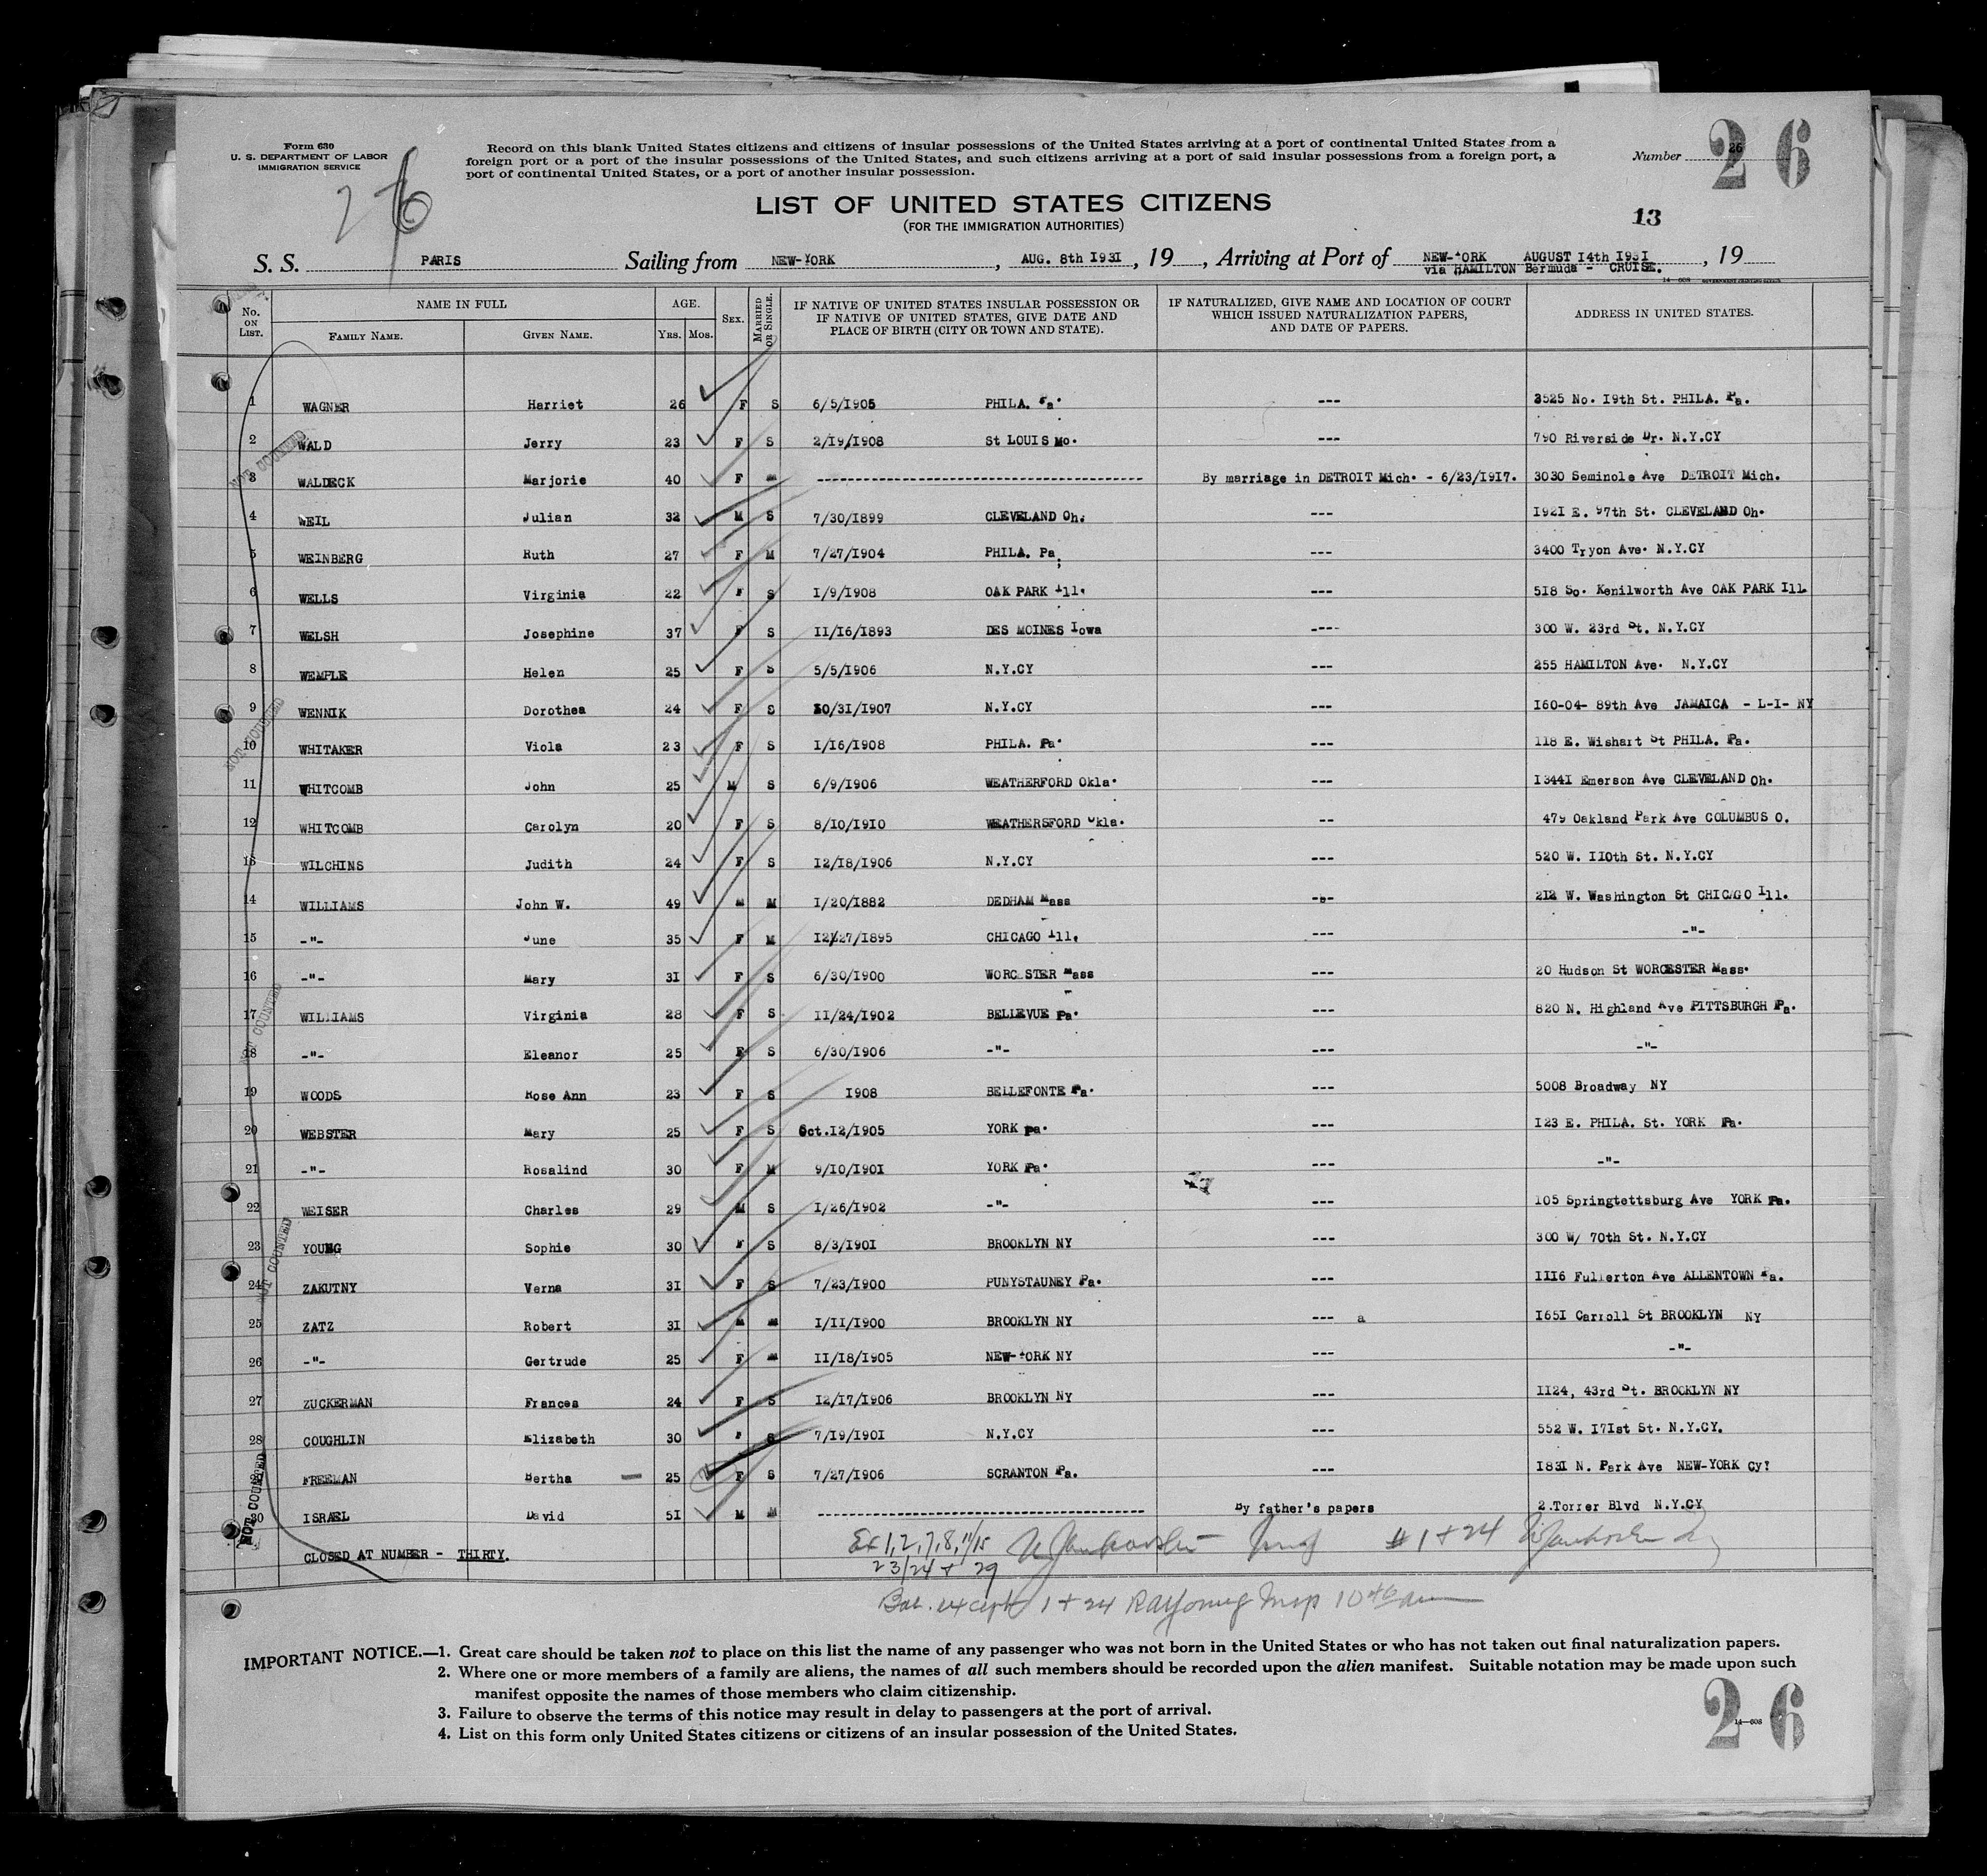 Form 630
U. S. DEPARTMENT OF LABOR
IMMIGRATION SERVICE
26
Record on this blank United States citizens and citizens of insular possessions of the United States arriving at a port of continental United States from a
foreign port or a port of the insular possessions of the United States, and such citizens arriving at a port of said insular possessions from a foreign port, a
port of continental United States, or a port of another insular possession.
Number 26
26
LIST OF UNITED STATES CITIZENS
(FOR THE IMMIGRATION AUTHORITIES)
13
S. S. PARIS Sailing from NEW-YORK, AUG. 8th I93I, 19 , Arriving at Port of NEW-YORK AUGUST I4th I93I, 19
via HAMILTON Bermuda - CRUISE.
14-608 GOVERNMENT PRINTING OFFICE
No. ON LIST. NAME IN FULL FAMILY NAME. GIVEN NAME. AGE. YRS. MOS. SEX. MARRIED OR SINGLE. IF NATIVE OF UNITED STATES INSULAR POSSESSION OR IF NATIVE OF UNITED STATES, GIVE DATE AND PLACE OF BIRTH (CITY OR TOWN AND STATE). IF NATURALIZED, GIVE NAME AND LOCATION OF COURT WHICH ISSUED NATURALIZATION PAPERS, AND DATE OF PAPERS. ADDRESS IN UNITED STATES.
1 WAGNER Harriet 26 F S 6/5/I905 PHILA. Pa. --- 3525 No. I9th St. PHILA. Pa.
2 WALD Jerry 23 F S 2/I9/I908 St LOUIS Mo. --- 790 Riverside Dr. N.Y.CY
3 WALDECK Marjorie 40 F M --- By marriage in DETROIT Mich. - 6/23/I917. 3030 Seminole Ave DETROIT Mich.
4 WEIL Julian 32 M S 7/30/I899 CLEVELAND Oh. --- I92I E. 97th St. CLEVELAND Oh.
5 WEINBERG Ruth 27 F M 7/27/I904 PHILA. Pa. --- 3400 Tryon Ave. N.Y.CY
6 WELLS Virginia 22 F S I/9/I908 OAK PARK Ill. --- 5I8 So. Kenilworth Ave OAK PARK Ill.
7 WELSH Josephine 37 F S II/I6/I893 DES MOINES Iowa ---- 300 W. 23rd St. N.Y.CY
8 WEMPLE Helen 25 F S 5/5/I906 N.Y.CY --- 255 HAMILTON Ave. N.Y.CY
9 WENNIK Dorothea 24 F S I0/3I/I907 N.Y.CY --- I60-04- 89th Ave JAMAICA - L-I- NY
10 WHITAKER Viola 23 F S I/I6/I908 PHILA. Pa. --- II8 E. Wishart St PHILA. Pa.
11 WHITCOMB John 25 M S 6/9/I906 WEATHERFORD Okla. --- I344I Emerson Ave CLEVELAND Oh.
12 WHITCOMB Carolyn 20 F S 8/I0/I9I0 WEATHERSFORD Okla. -- 479 Oakland Park Ave COLUMBUS O.
13 WILCHINS Judith 24 F S I2/I8/I906 N.Y.CY --- 520 W. II0th St. N.Y.CY
14 WILLIAMS John W. 49 M M I/20/I882 DEDHAM Mass --- 2I2 W. Washington St CHICAGO Ill.
15 -"- June 35 F M I2/27/I895 CHICAGO Ill. --- -"-
16 -"- Mary 3I F S 6/30/I900 WORCESTER Mass --- 20 Hudson St WORCESTER Mass.
17 WILLIAMS Virginia 28 F S II/24/I902 BELLEVUE Pa. --- 820 N. Highland Ave PITTSBURGH Pa.
18 -"- Eleanor 25 F S 6/30/I906 -"- --- -"-
19 WOODS Rose Ann 23 F S I908 BELLEFONTE Pa. --- 5008 Broadway NY
20 WEBSTER Mary 25 F S Oct.I2/I905 YORK Pa. --- I23 E. PHILA. St. YORK Pa.
21 -"- Rosalind 30 F M 9/I0/I90I YORK Pa. --- -"-
22 WEISER Charles 29 M S I/26/I902 -"- --- I05 Springtettsburg Ave YORK Pa.
23 YOUNG Sophie 30 F S 8/3/I90I BROOKLYN NY --- 300 W/ 70th St. N.Y.CY
24 ZAKUTNY Verna 3I F S 7/23/I900 PUNYSTAUNEY Pa. --- III6 Fullerton Ave ALLENTOWN Pa.
25 ZATZ Robert 3I M M I/II/I900 BROOKLYN NY --- a I65I Carroll St BROOKLYN NY
26 -"- Gertrude 25 F M II/I8/I905 NEW-YORK NY --- -"-
27 ZUCKERMAN Frances 24 F S I2/I7/I906 BROOKLYN NY --- II24, 43rd St. BROOKLYN NY
28 COUGHLIN Elizabeth 30 F S 7/I9/I90I N.Y.CY --- 552 W. I7Ist St. N.Y.CY.
29 FREEMAN Bertha 25 F S 7/27/I906 SCRANTON Pa. --- I83I N. Park Ave NEW-YORK Cy?
30 ISRAEL David 5I M M --- By father's papers 2.Torrer Blvd N.Y.CY
NOT COUNTED
NOT COUNTED
NOT COUNTED
NOT COUNTED
NOT COUNTED
CLOSED AT NUMBER - THIRTY.
Ex 1, 2, 7, 8, 11/15
23/24 + 29
# 1 + 24
Bal. except 1 + 24
IMPORTANT NOTICE.—1. Great care should be taken not to place on this list the name of any passenger who was not born in the United States or who has not taken out final naturalization papers.
2. Where one or more members of a family are aliens, the names of all such members should be recorded upon the alien manifest. Suitable notation may be made upon such
manifest opposite the names of those members who claim citizenship.
3. Failure to observe the terms of this notice may result in delay to passengers at the port of arrival.
4. List on this form only United States citizens or citizens of an insular possession of the United States.
26
14—608